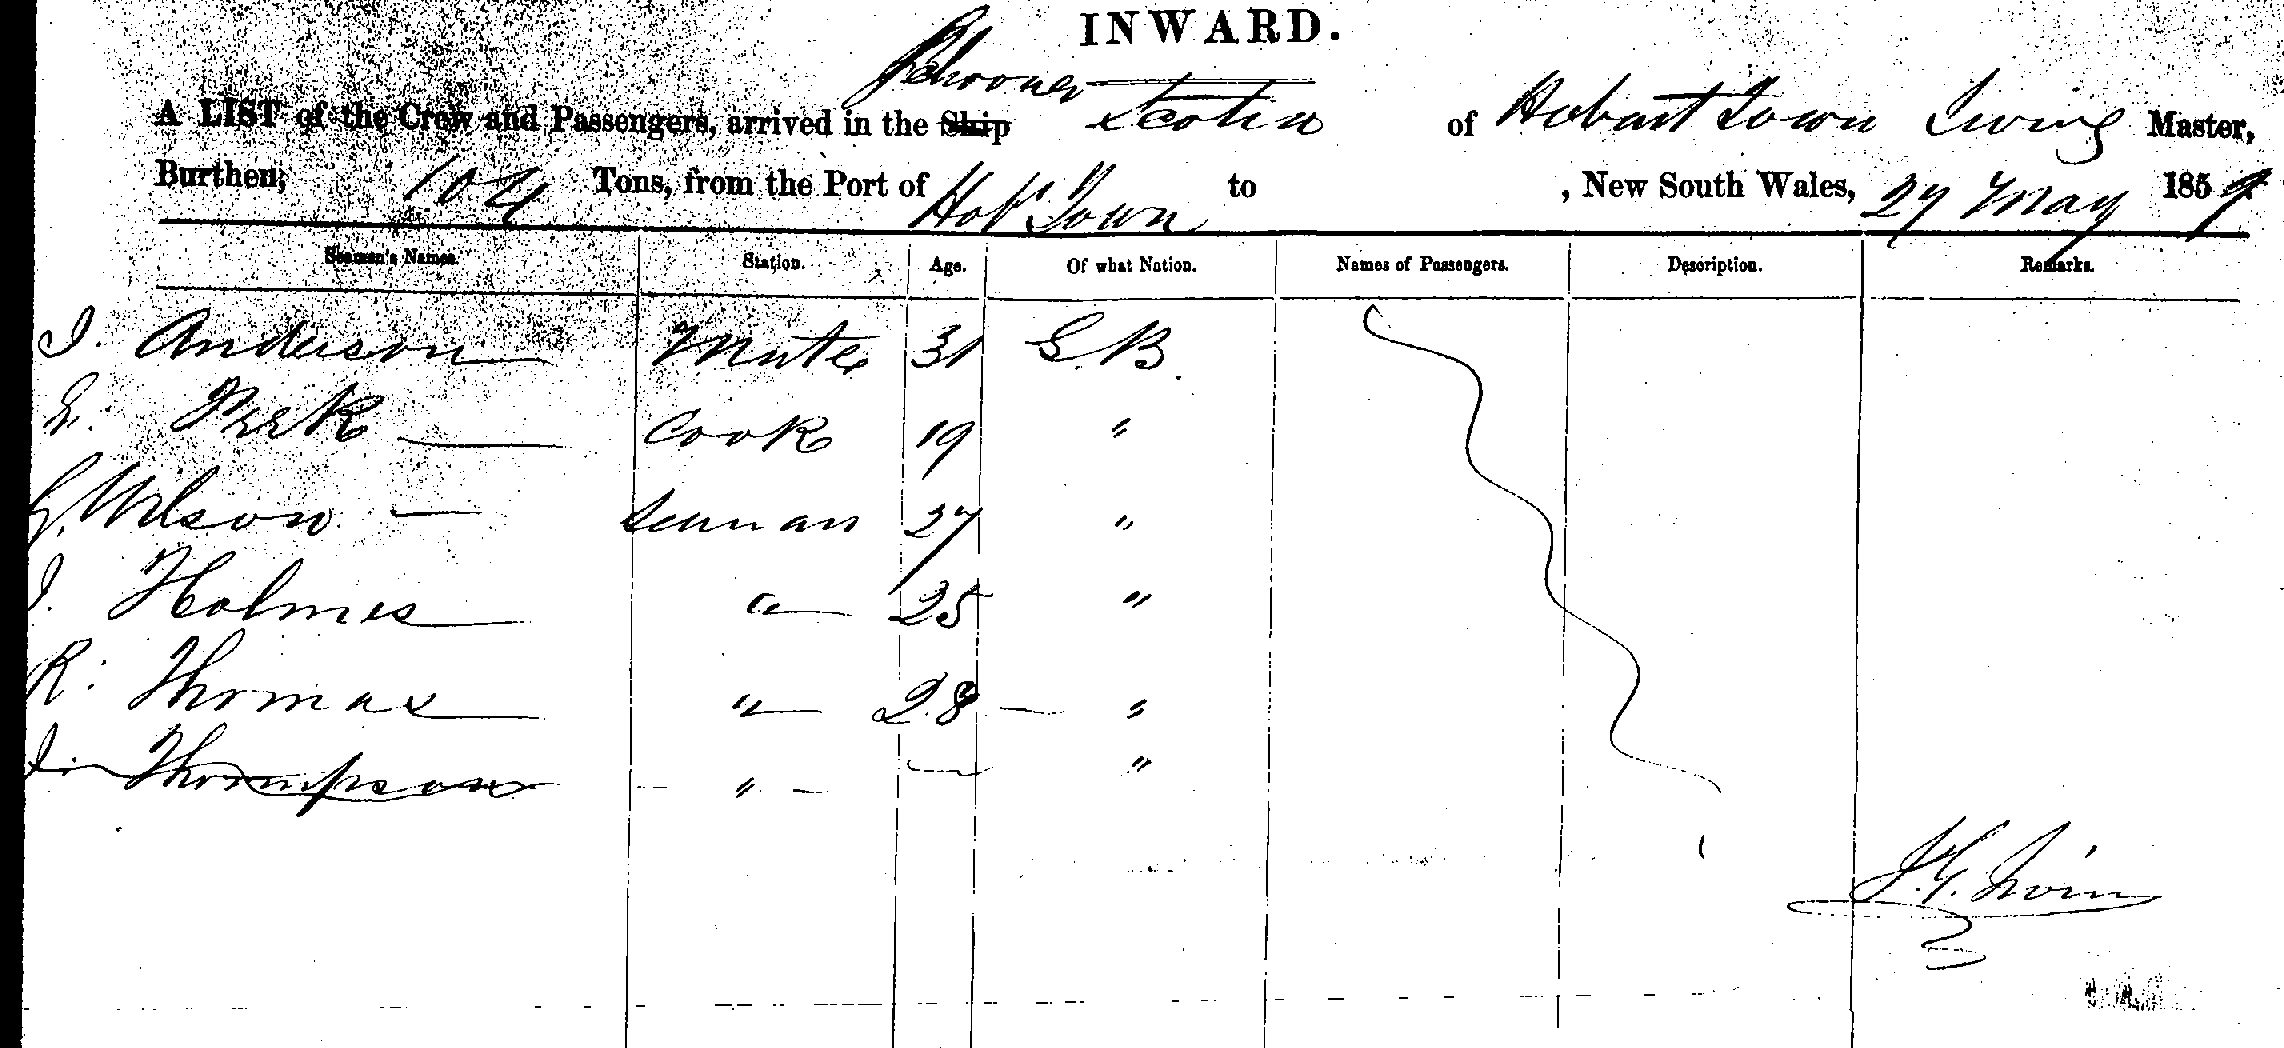 INWARD.
Schooner
A LIST of the Crew and Passengers, arrived in the Ship Scotia of Hobart Town Irving Master,
Burthen, 104 Tons, from the Port of Hobt Town to , New South Wales, 29 May 1859
Seamen's Names. Station. Age. Of what Nation. Names of Passengers. Description. Remarks.
J. Anderson Mate 31 G.B.
Peek Cook 19 "
G. Wilson Seaman 27 "
J. Holmes " 25 "
R. Thomas " 28 "
Thompson " "